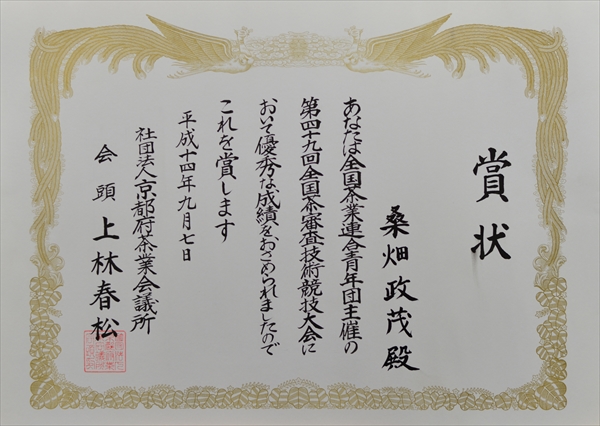 賞状
桑畑政茂殿
あなたは全国茶業連合青年団主催の
第四十九回全国茶審査技術競技大会に
おいて優秀な成績をおさめられましたので
これを賞します
平成十四年九月七日
社団法人京都府茶業会議所
会頭 上林春松